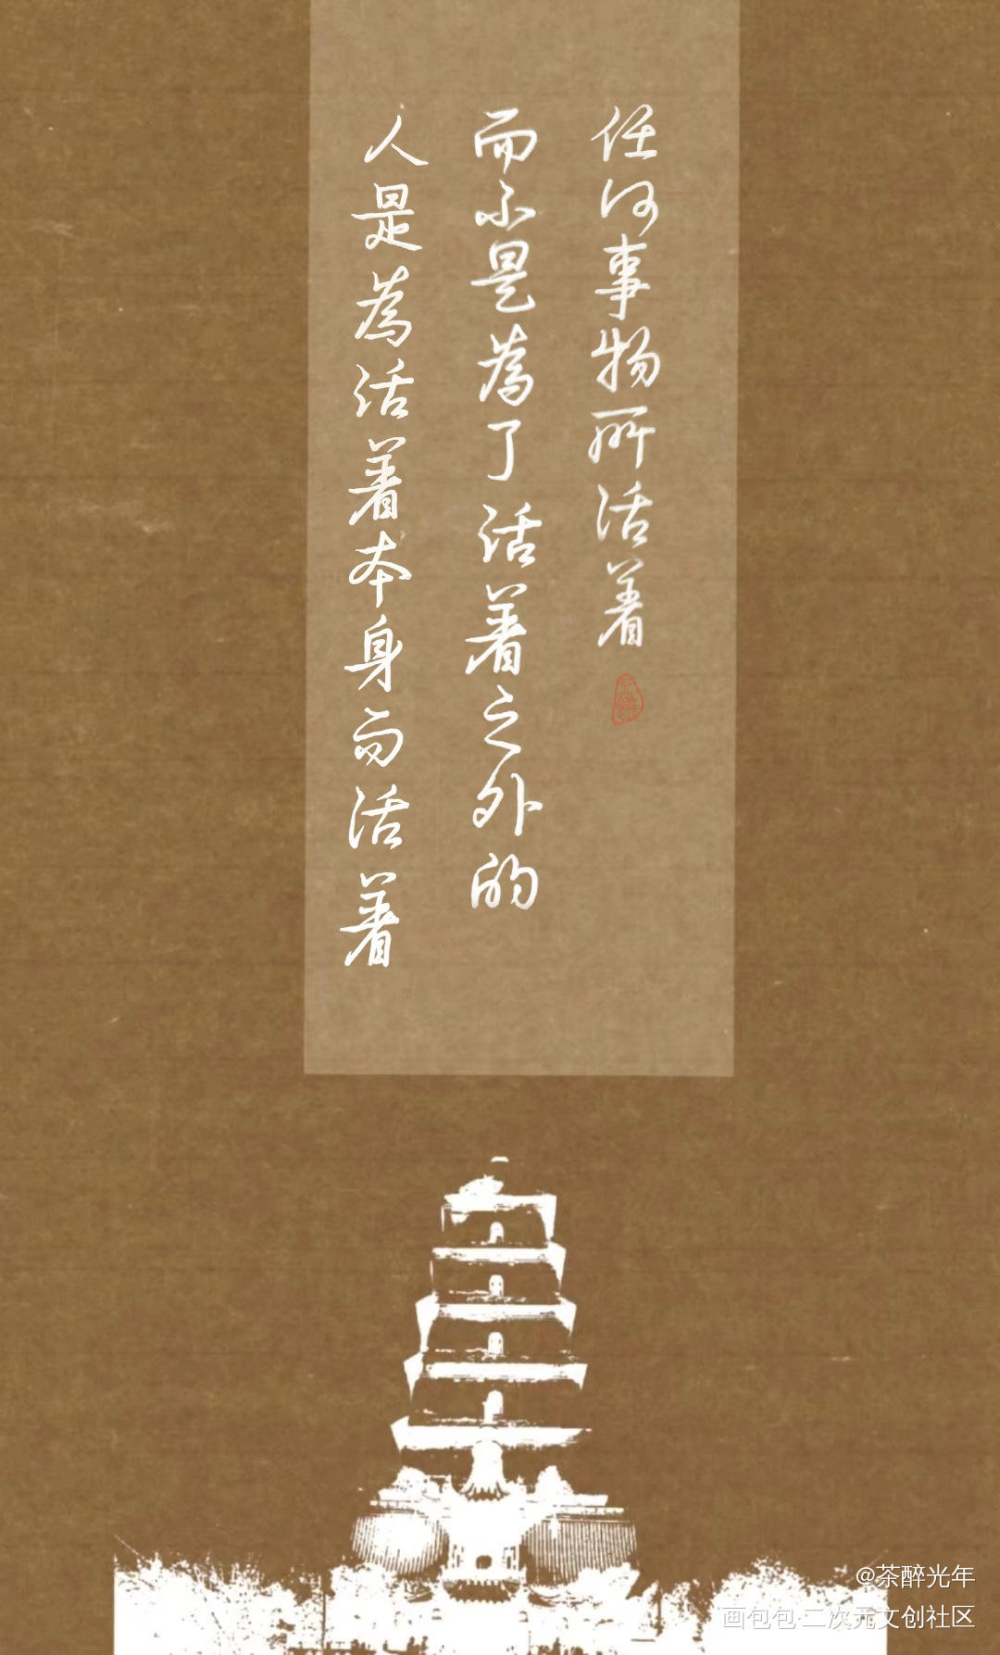 人是為活着本身而活着
而不是為了活着之外的
任何事物所活着
@茶醉光年
画包包·二次元文创社区